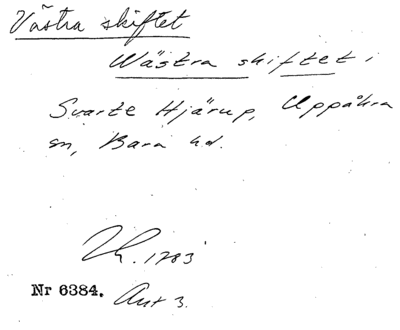 Västra skiftet
Wästra skiftet i
Svarte Hjärup, Uppåkra
sn, Bara hd.
1783
Nr 6384. Akt 3.